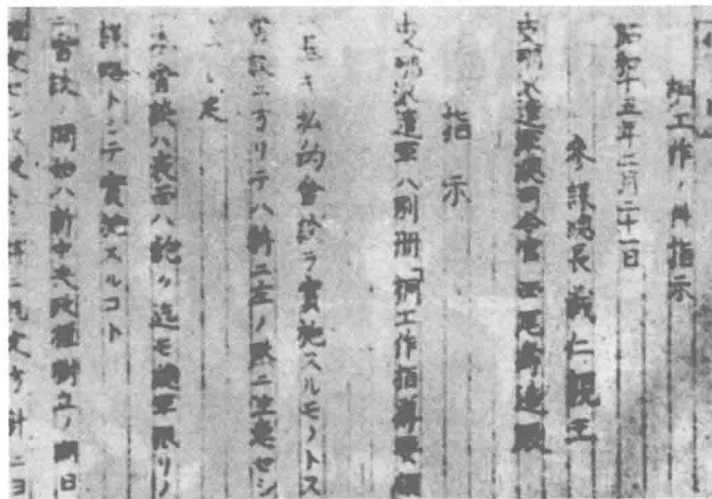 桐工作ノ件指示
昭和十五年二月二十一日
參謀總長 載仁親王
支那派遣軍總司令官 西尾壽造殿
指示
支那派遣軍ハ別册「桐工作指導要領
基キ私的會談ヲ實施スルモノトス
ニ方リテハ特ニ左ノ點ニ注意セシ
定
本會談ハ表面ハ飽ク迄モ總軍限リノ
謀略トシテ實施スルコト
二會談ノ開始ハ新中央政權樹立ノ期日
方針ニヨ